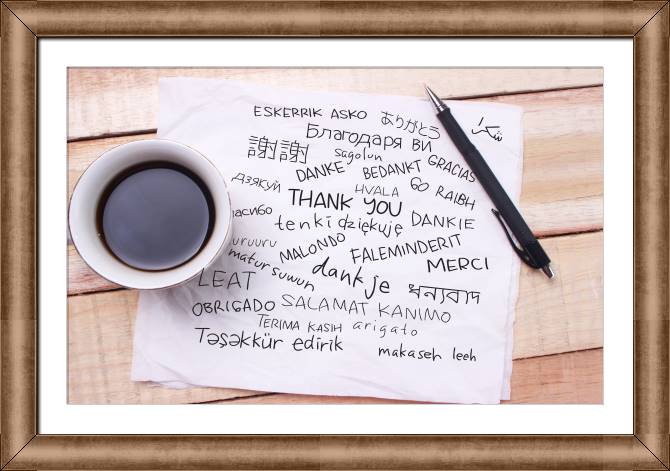 ESKERRIK ASKO ありがとう شكرا
Благодаря ви
謝謝 sagolun GRACIAS
DANKE BEDANKT
дзякуй HVALA GO RAIBH
THANK YOU
асибо tenki dziękuję DANKIE
uruuru MALONDO FALEMINDERIT
matur suwun dank je MERCI
LEAT ধন্যবাদ
OBRIGADO SALAMAT KANIMO
TERIMA KASIH arigato
Təşəkkür edirik makaseh leeh